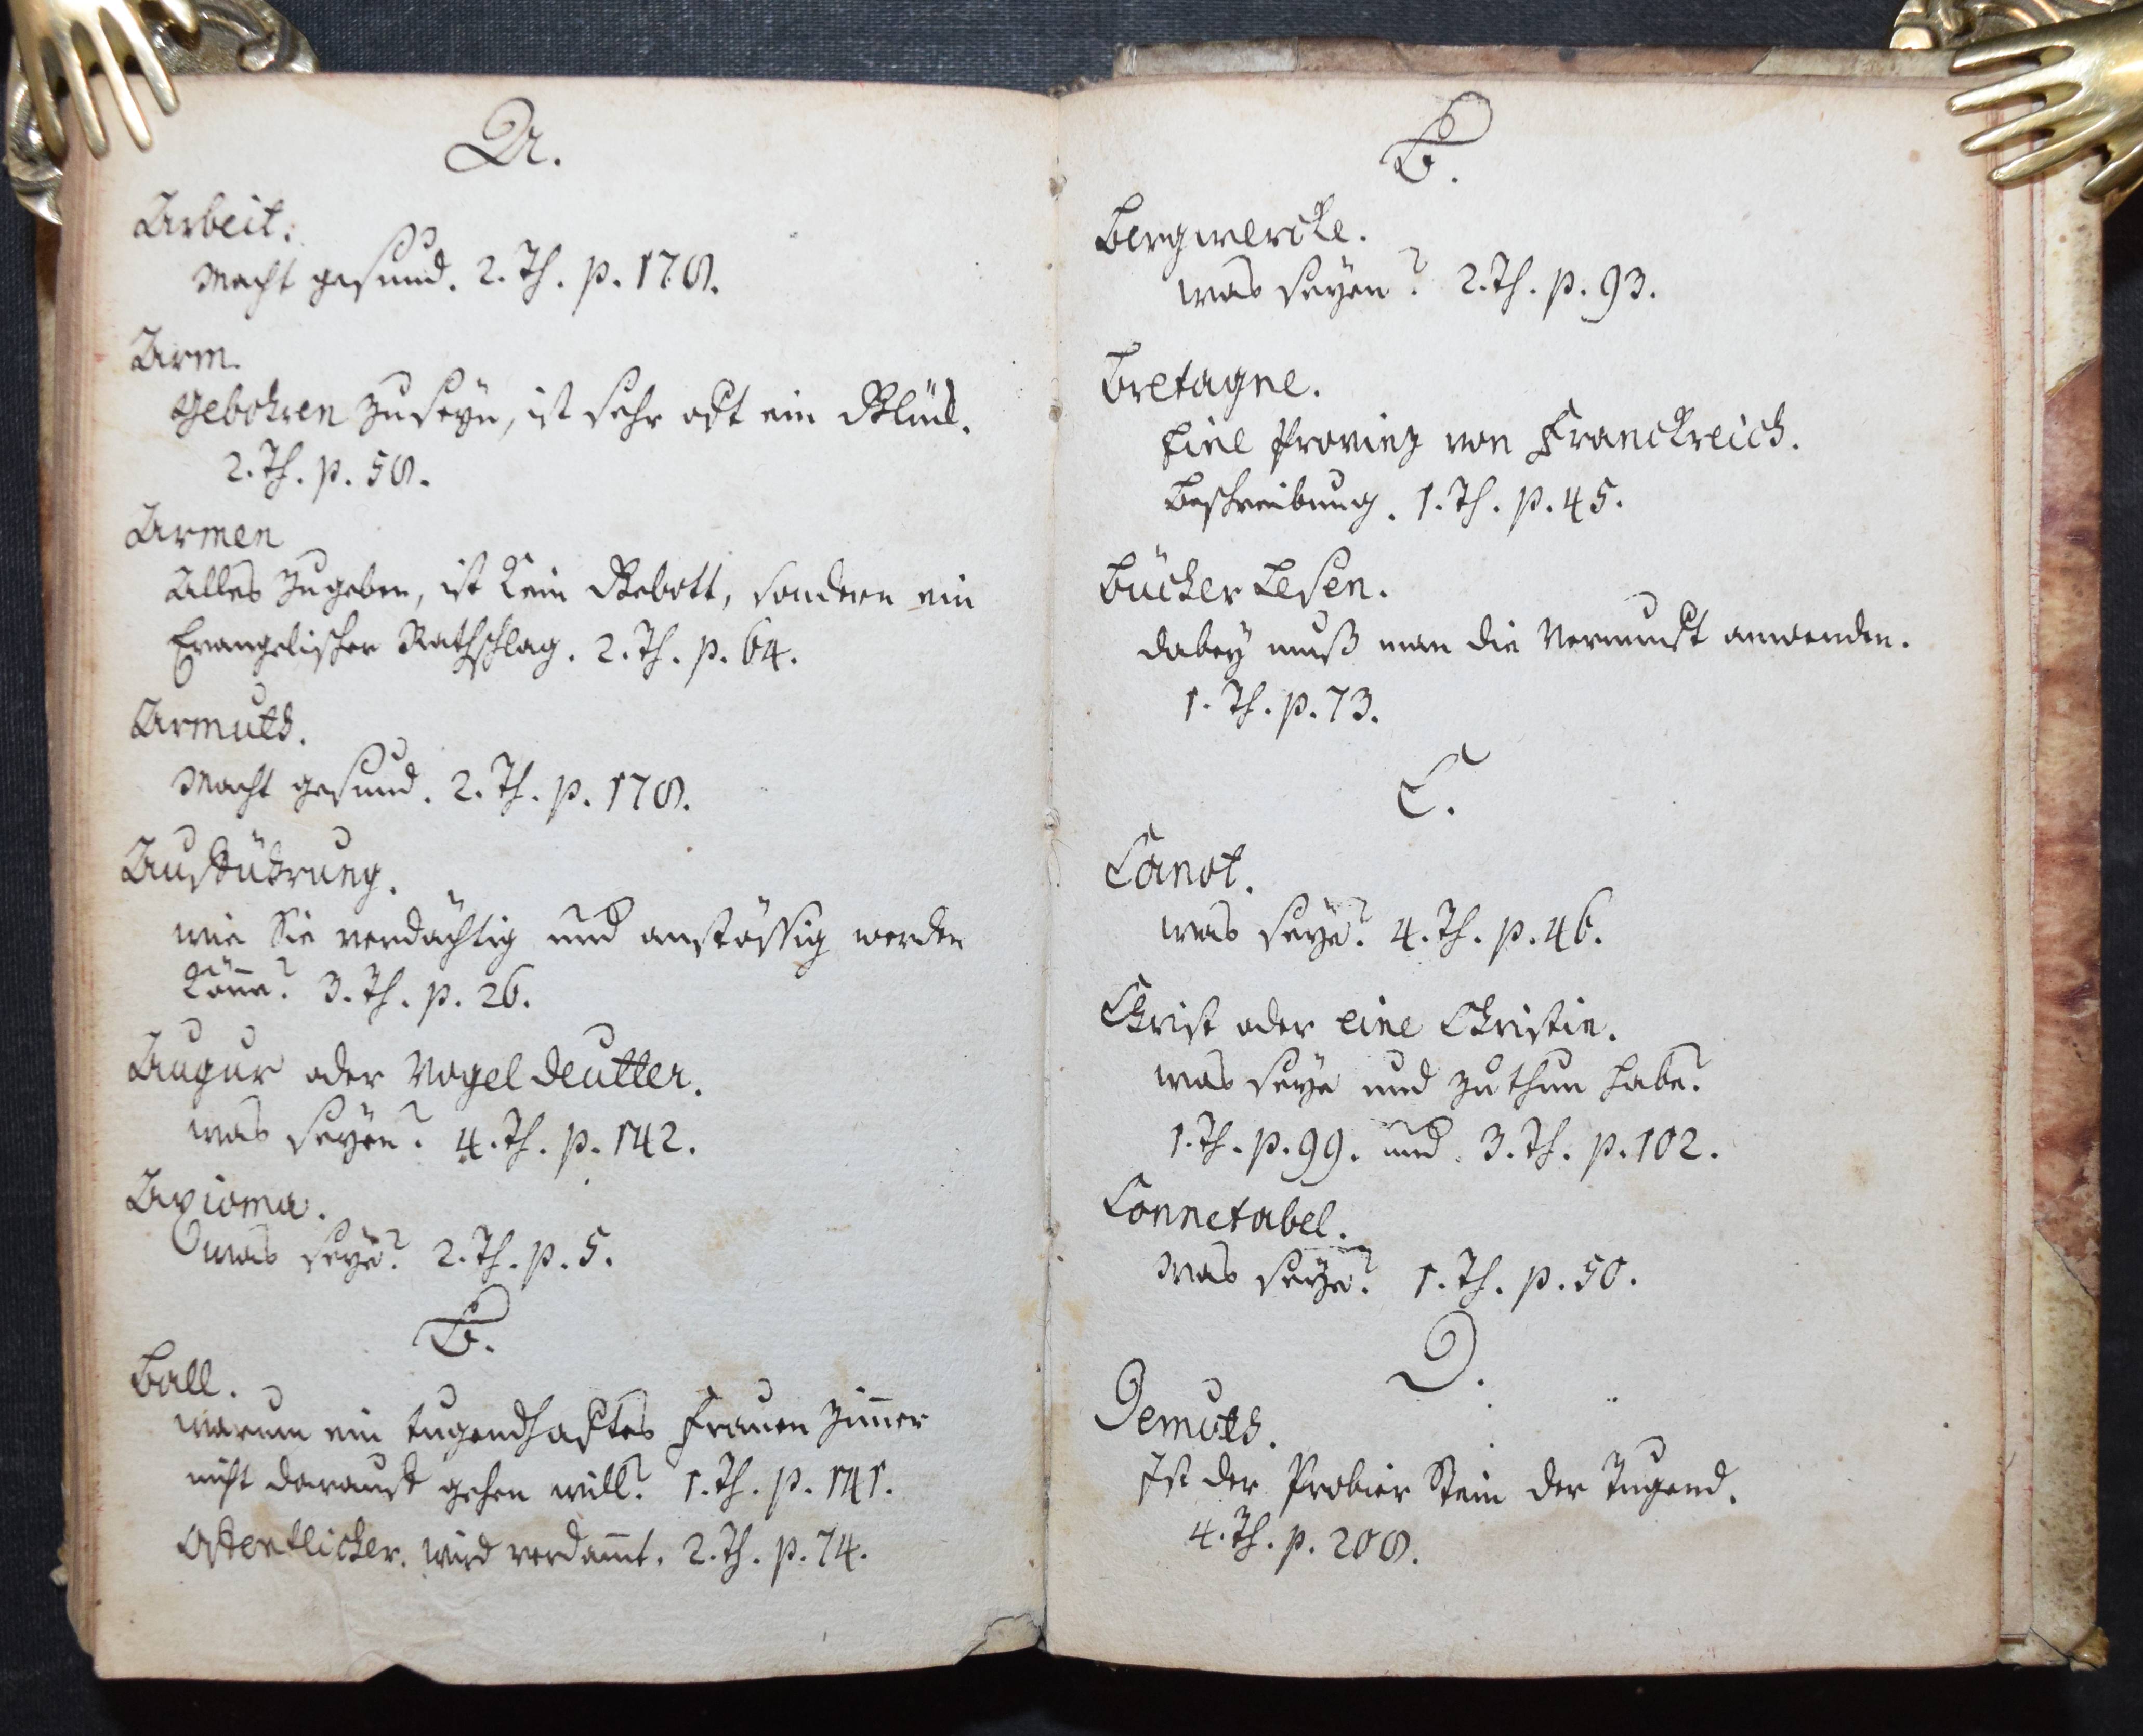 A.
Arbeit.
Macht gesund. 2. Th. p. 178.
Arm.
Gebohren zu seyn, ist sehr oft ein Glück.
2. Th. p. 58.
Armen
Alles zu geben, ist kein Gebott, sondern ein
Evangelischer Rathschlag. 2. Th. p. 64.
Armuth.
Macht gesund. 2. Th. p. 178.
Aufführung.
wie Sie verdächtig und anstössig werden
könne? 3. Th. p. 26.
Augur oder Vogel deutter.
was seyen? 4. Th. p. 142.
Axioma.
was seye? 2. Th. p. 5.
B.
Ball.
warum ein tugendhaftes Frauen Zim̅er
nicht darauf gehen will? 1. Th. p. 141.
Offentlicher. wird verdam̅t. 2. Th. p. 74.
B.
Bergwercke.
was seyen? 2. Th. p. 93.
Bretagne.
Eine Provinz von Franckreich.
Beschreibung. 1. Th. p. 45.
Bücher Lesen.
dabey muß man die Vernunft anwenden.
1. Th. p. 73.
C.
Canot.
was seye? 4. Th. p. 46.
Christ oder eine Christin.
was seye und zu thun habe?
1. Th. p. 99. und 3. Th. p. 102.
Connetabel.
was seye? 1. Th. p. 50.
D.
Demuth.
Ist der Probier Stein der Tugend.
4. Th. p. 208.